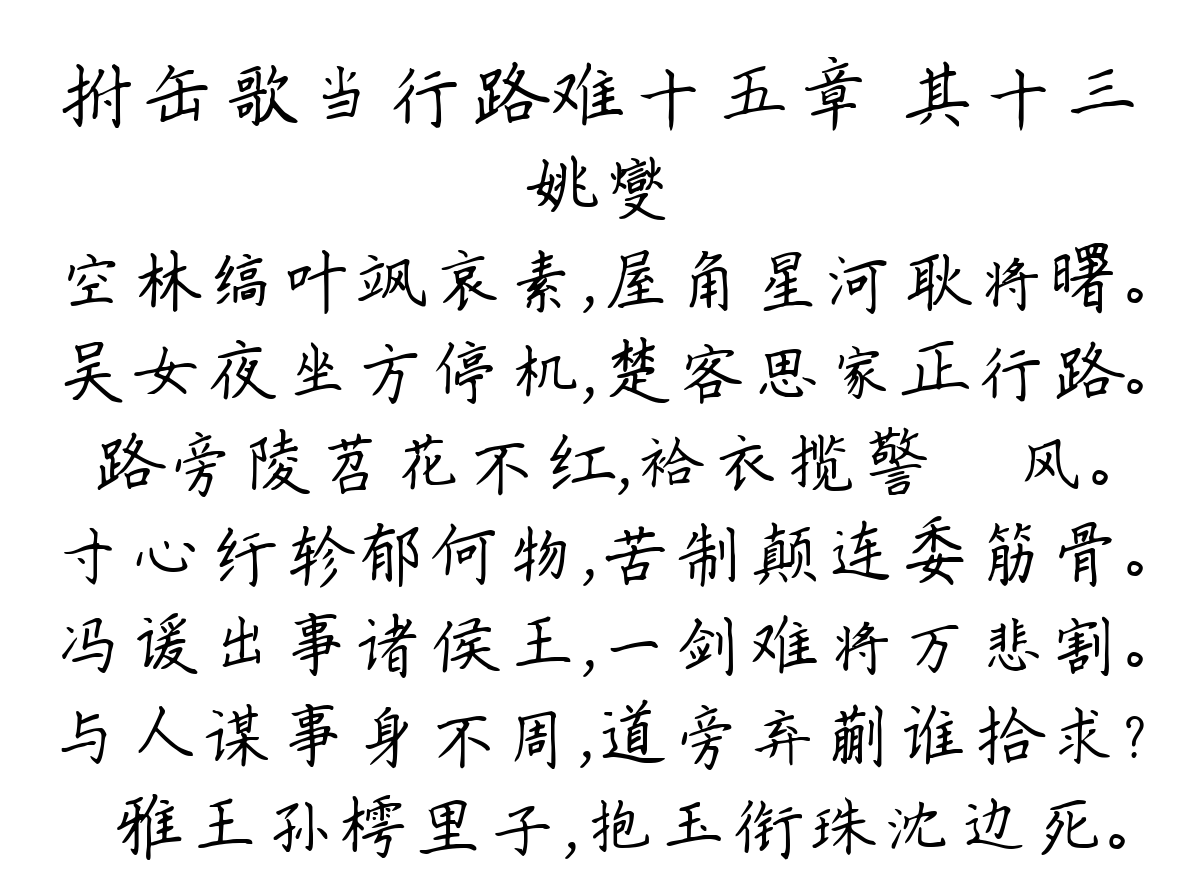 拊缶歌当行路难十五章 其十三
姚燮
空林缟叶飒哀素,屋角星河耿将曙。
吴女夜坐方停机,楚客思家正行路。
路旁陵苕花不红,袷衣揽警 风。
寸心纡轸郁何物,苦制颠连委筋骨。
冯谖出事诸侯王,一剑难将万悲割。
与人谋事身不周,道旁弃蒯谁拾求?
雅王孙樗里子,抱玉衔珠沈边死。